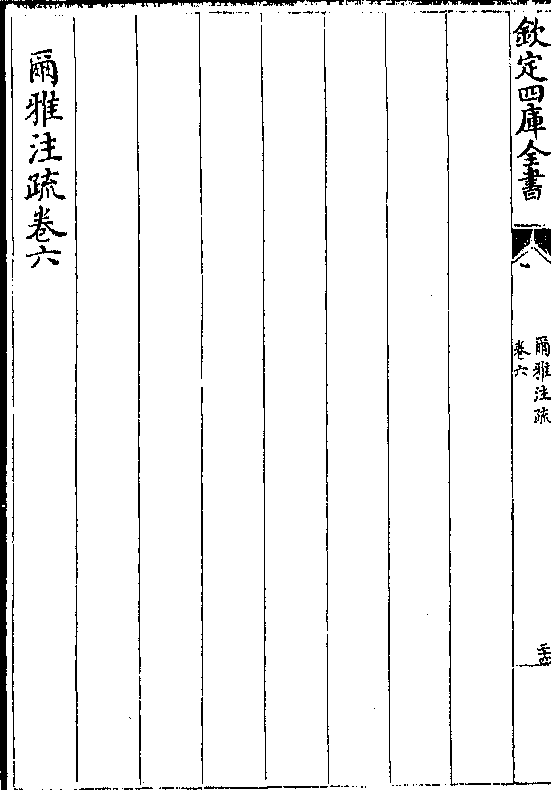 欽定四庫全書
爾雅注疏
卷六
爾雅注疏卷六